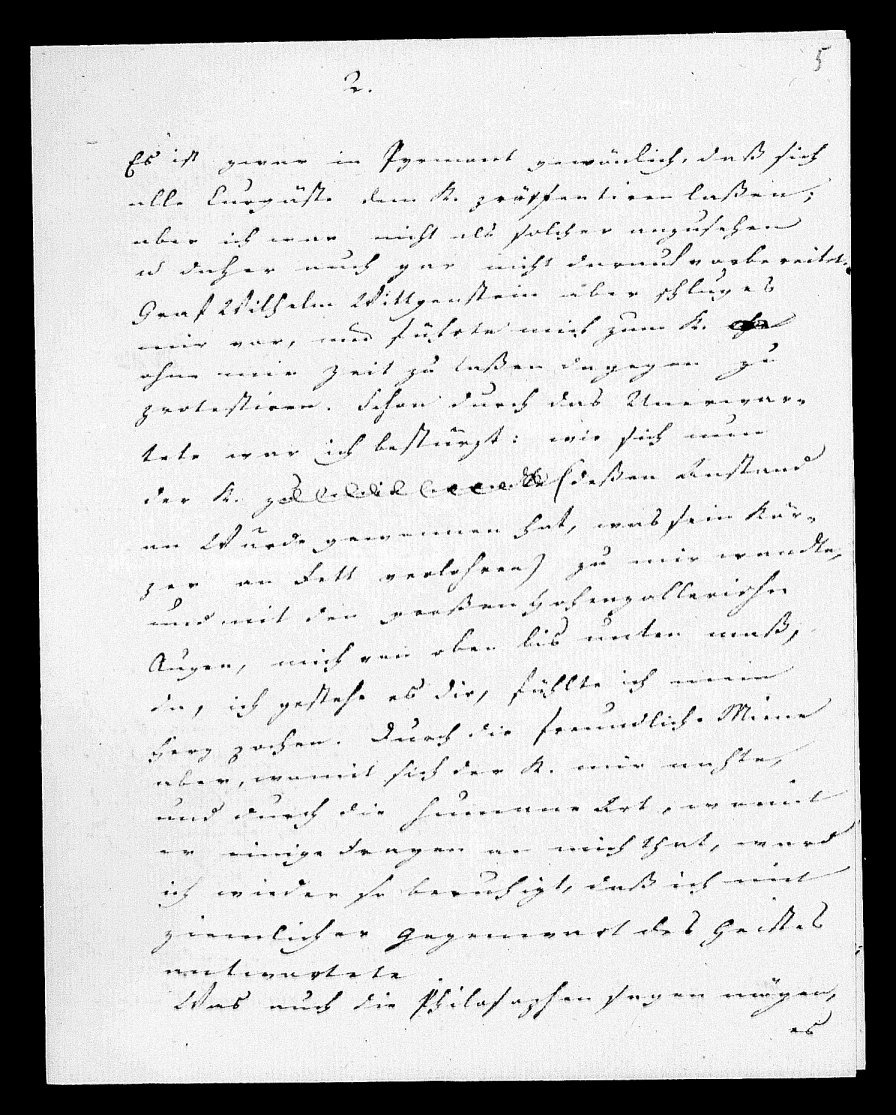 5
2.
Es ist zwar in Pyrmont gewönlich, daß sich
alle Curgäste dem K. präsentiren laßen;
aber ich war nicht als solcher anzusehen
u daher auch gar nicht darauf vorbereitet.
Graf Wilhelm Wittgenstein aber schlug es
mir vor, und führte mich zum K.
ohne mir Zeit zu laßen dagegen zu
protestiren. Schon durch das Unerwar-
tete war ich bestürzt: wie sich nun
der K. (deßen Anstand
an Würde gewonnen hat, was sein Kör-
per an Fett verlohren) zu mir wandte,
und mit den großen Hohenzollerischen
Augen, mich von oben bis unten maß,
da, ich gestehe es dir, fühlte ich mein
Herz pochen. Durch die freundliche Miene
aber, womit sich der K. mir nahte,
und durch die humane Art, womit
er einige Fragen an mich that, ward
ich wieder so beruhigt, daß ich mit
ziemlicher Gegenwart des Geistes
antwortete.
Was auch die Philosophen sagen mögen,
es